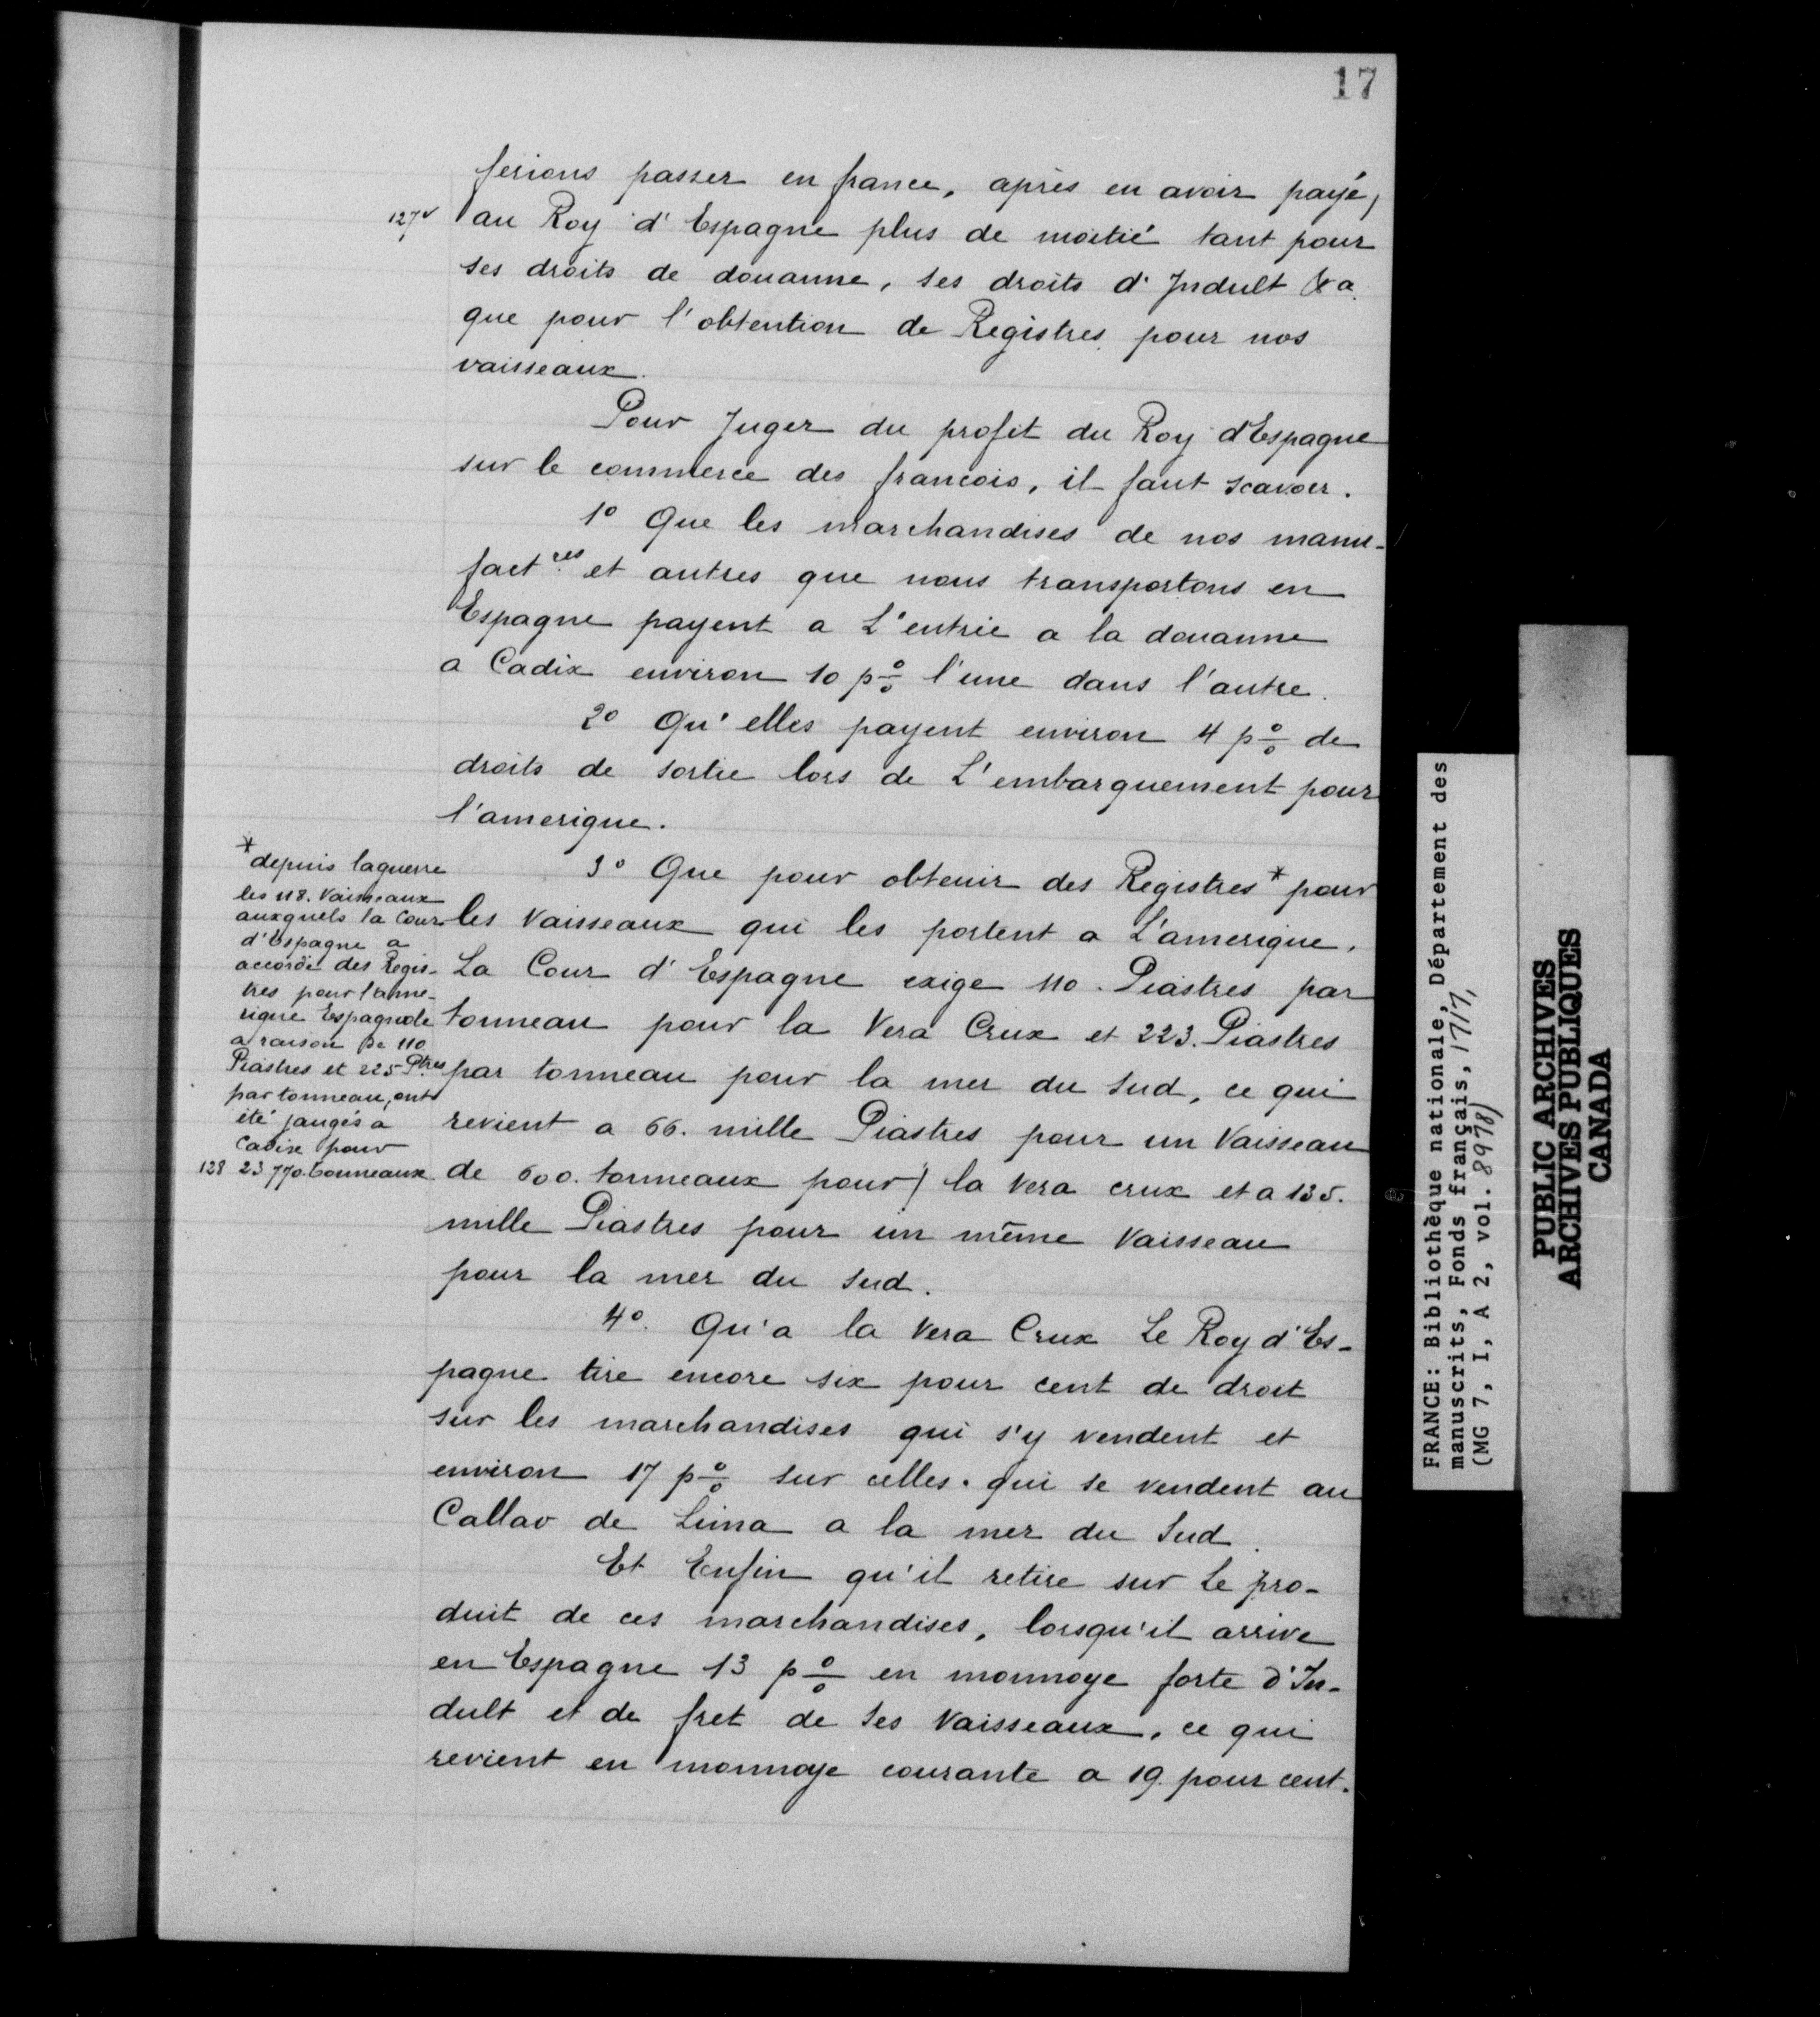 17
ferions passer en france, après en avoir payé,
127v au Roy d'Espagne plus de moitié tant pour
ses droits de douanne, ses droits d'Indult &a
que pour l'obtention de Registres pour nos
vaisseaux.
Pour Juger du profit du Roy d'Espagne
sur le commerce des francois, il faut scavoir.
1º Que les marchandises de nos manu-
fact.res et autres que nous transportons en
Espagne payent a L'entrée a la douanne
a Cadix environ 10 p% l'une dans l'autre.
2º Qu'elles payent environ 4 p% de
droits de sortie lors de L'embarquement pour
l'amerique.
3º Que pour obtenir des Registres * pour
les Vaisseaux qui les portent a L'amerique.
La Cour d'Espagne exige 110. Piastres par
tonneau pour la Vera Crux et 223. Piastres
par tonneau pour la mer du Sud, ce qui
revient a 66. mille Piastres pour un Vaisseau
de 600. tonneaux pour / la Vera crux et a 135.
mille Piastres pour un même Vaisseau
pour la mer du Sud.
4º. Qu'a la Vera Crux Le Roy d'Es-
pagne tire encore six pour cent de droit
sur les marchandises qui s'y vendent et
environ 17 p% sur celles qui se vendent au
Callao de Lima a la mer du Sud.
Et Enfin qu'il retire sur Le pro-
duit de ces marchandises, lorsqu'il arrive
en Espagne 13 p% en monnoye forte d'In-
dult et de fret de ses Vaisseaux, ce qui
revient en monnoye courante a 19. pour cent.
* depuis laguerre
les 118. Vaisseaux
auxquels la Cour
d'Espagne a
accordé des Regis-
tres pour l'ame-
rique Espagnole
a raison de 110
Piastres et 225 Ptres
par tonneau, ont
été jaugés a
Cadix pour
128 23 770. tonneaux
FRANCE: Bibliothèque nationale, Département des
manuscrits, Fonds français, 1717,
(MG 7, I, A 2, vol. 8978)
PUBLIC ARCHIVES
ARCHIVES PUBLIQUES
CANADA